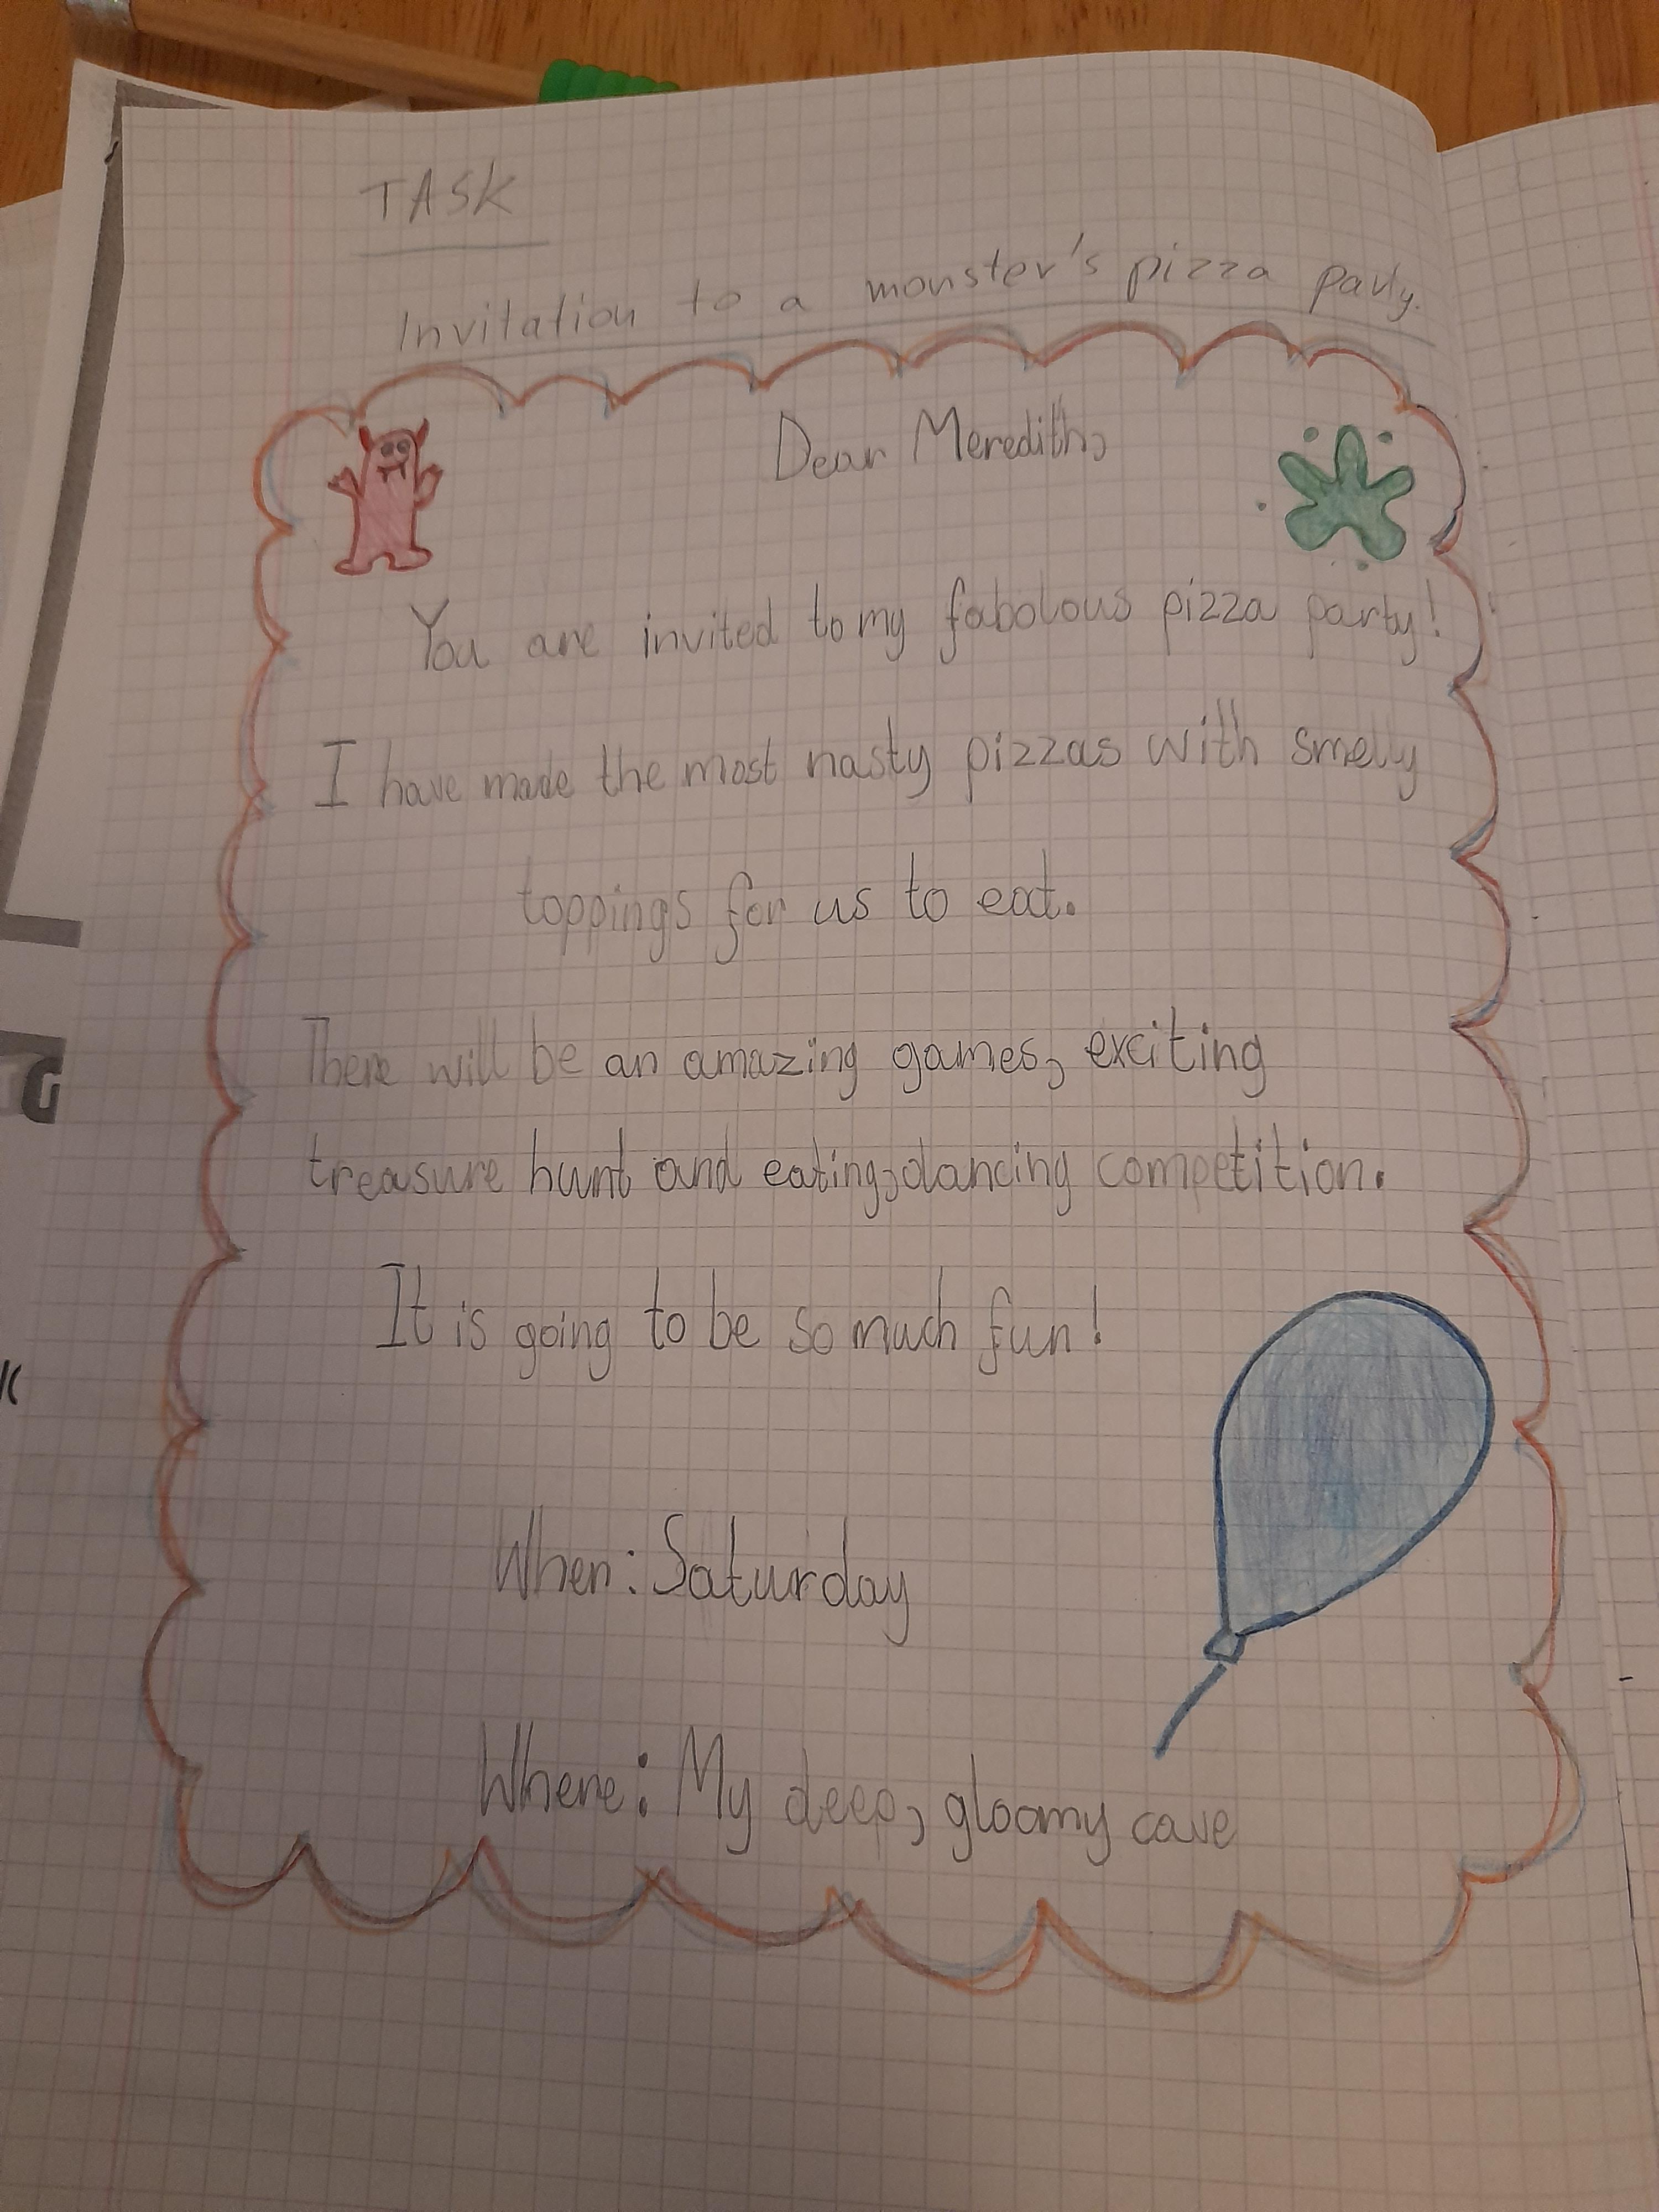 TASK
Invitation to a monster's pizza party.
Dear Meredith,
You are invited to my fabolous pizza party!
I have made the most nasty pizzas with smelly
toppings for us to eat.
There will be an amazing games, exciting
treasure hunt and eating,dancing competition.
It is going to be so much fun!
When: Saturday
Where: My deep, gloomy cave